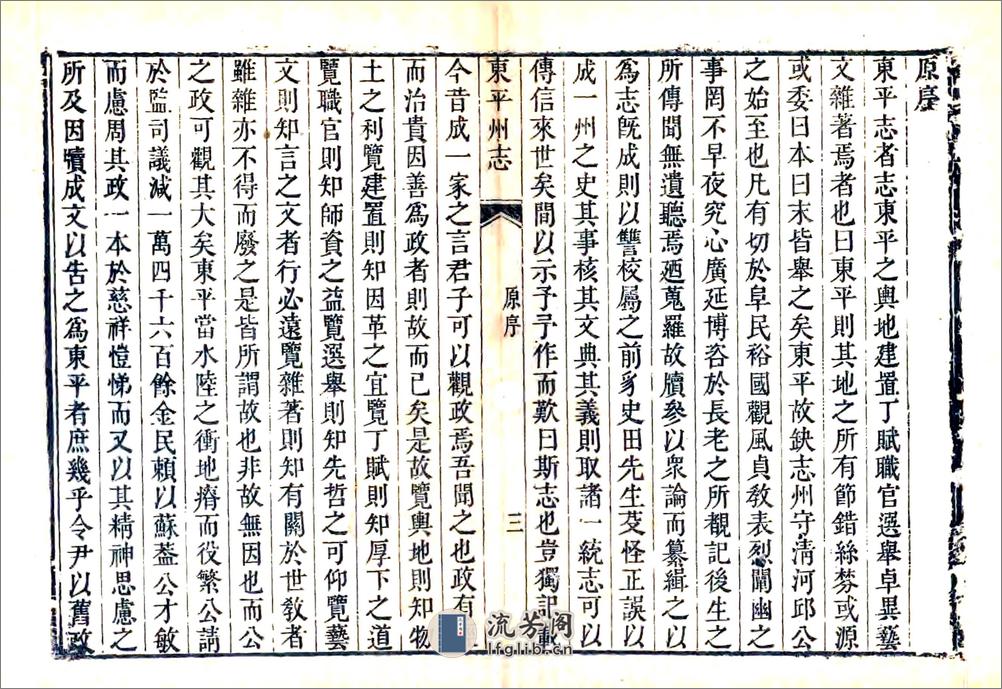 原序
東平志者志東平之輿地建置丁賦職官選舉卓異藝
文雜著焉者也曰東平則其地之所有節錯絲棼或源
或委曰本曰末皆舉之矣東平故缺志州守淸河邱公
之始至也凡有切於阜民裕國觀風貞敎表烈闡幽之
事罔不早夜究心廣延博咨於長老之所覩記後生之
所傳聞無遺聽焉廼蒐羅故牘參以衆論而纂緝之以
爲志旣成則以讐校屬之前豸史田先生芟怪正誤以
成一州之史其事核其文典其義則取諸一統志可以
傳信來世矣間以示予予作而歎曰斯志也豈獨記載
東平州志
原序
三
今昔成一家之言君子可以觀政焉吾聞之也政有
而治貴因善爲政者則故而已矣是故覽輿地則知物
土之利覽建置則知因革之宜覽丁賦則知厚下之道
覽職官則知師資之益覽選舉則知先哲之可仰覽藝
文則知言之文者行必遠覽雜著則知有關於世敎者
雖雜亦不得而廢之是皆所謂故也非故無因也而公
之政可觀其大矣東平當水陸之衝地瘠而役繁公請
於監司議減一萬四千六百餘金民賴以蘇葢公才敏
而慮周其政一本於慈祥愷悌而又以其精神思慮之
所及因牘成文以告之爲東平者庶幾乎令尹以舊政
流芳阁
lfglib.cn